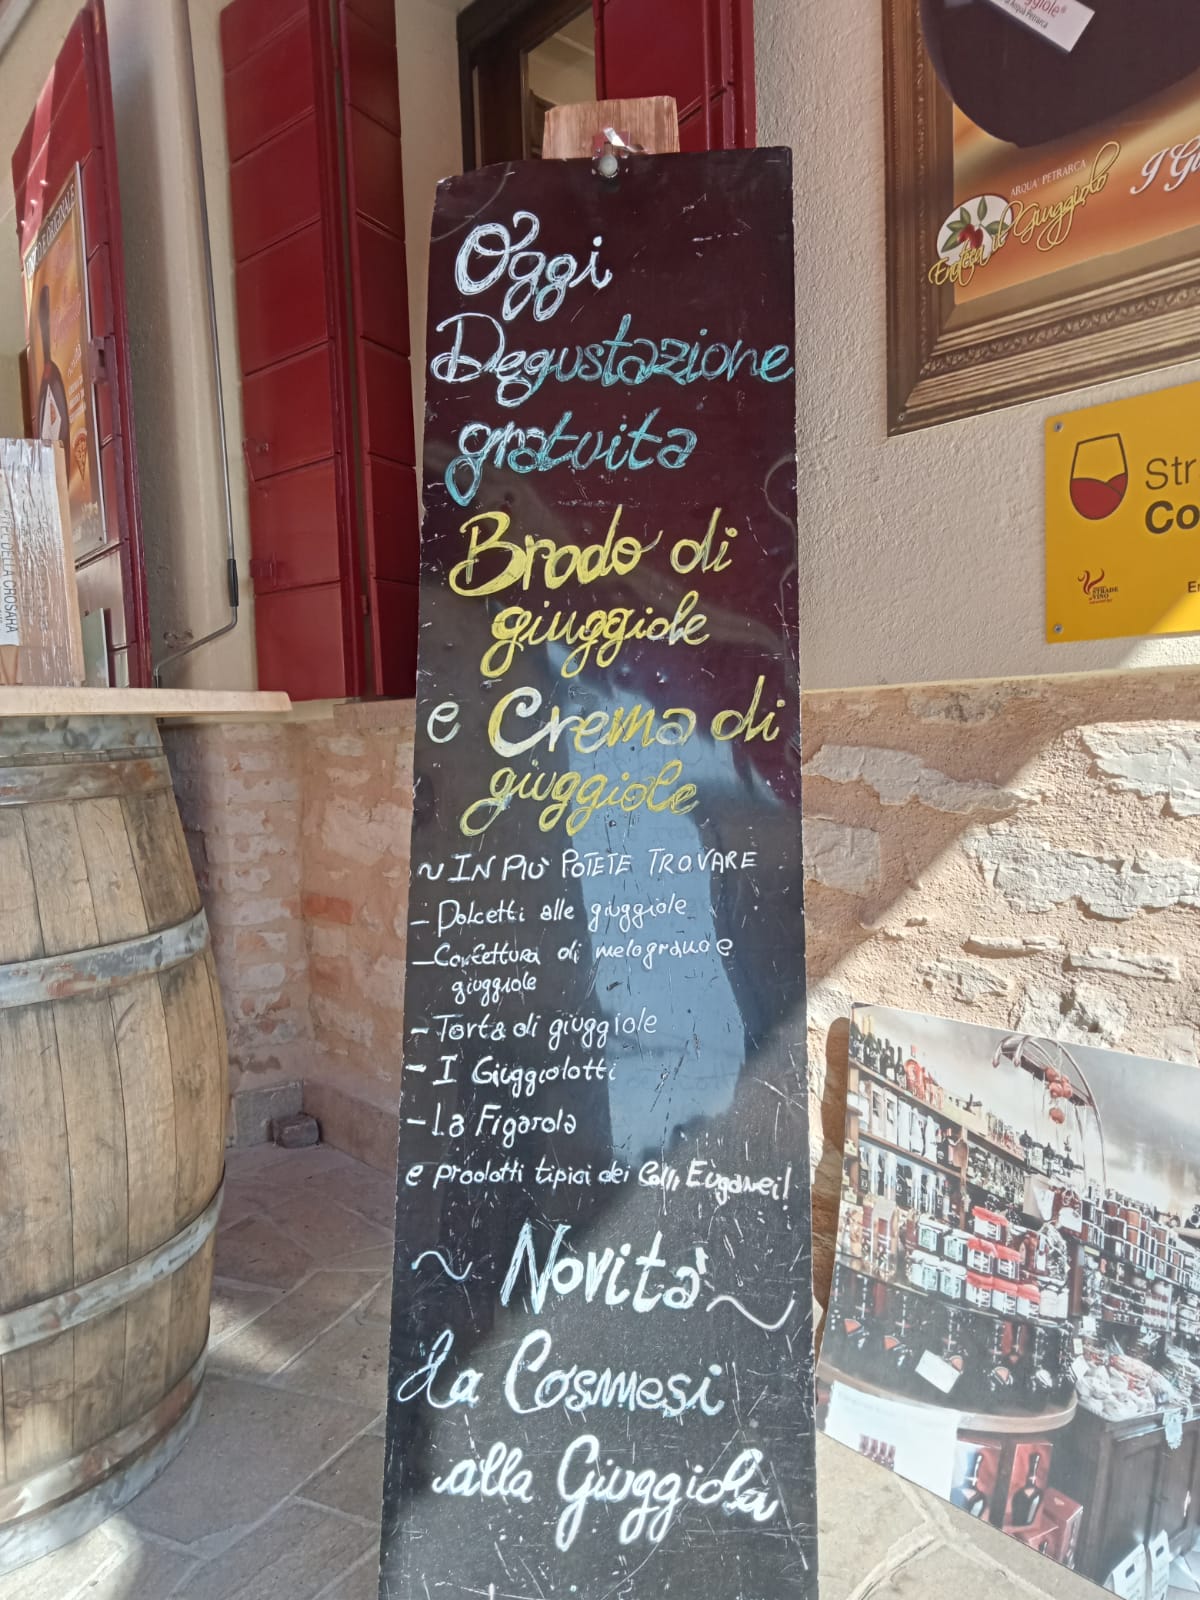 Oggi
Degustazione
gratuita
Brodo di
giuggiole
e Crema di
giuggiole
~ IN PIÙ POTETE TROVARE
- Dolcetti alle giuggiole
- Confettura di melograno e
giuggiole
- Torta di giuggiole
- I Giuggiolotti
- La Figarola
e prodotti tipici dei Colli Euganei!
~ Novità ~
La Cosmesi
alla Giuggiola
ARQUA' PETRARCA
Enoteca il Giuggiolo
Str
Co
STRADE
VINO
UNICO E ORIGINALE
DELLA CROSARA
Arquà Petrarca